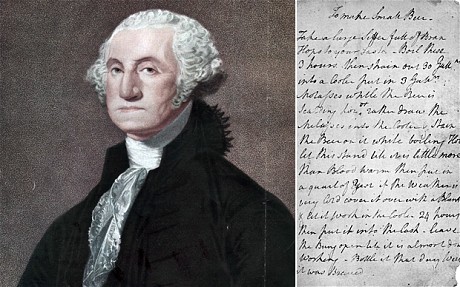 To make Small Beer
Take a large Siffer full of Bran
Hops to your Taste. Boil these
3 hours then strain out 30 Gall
into a Cooler put in 3 Gall
Molasses while the Beer is
Scalding hot rather draw the
Melasses into the Cooler & Strain
the Beer on it while boiling Hot
let this stand till it is little more
than Blood warm then put in
a quart of Yest if the Weather is
very Cold cover it over with a Blank
& let it work in the Cooler 24 hours
then put it into the Cask - leave
the Bung open till it is almost don
Working - Bottle it that day Week
it was Brewed